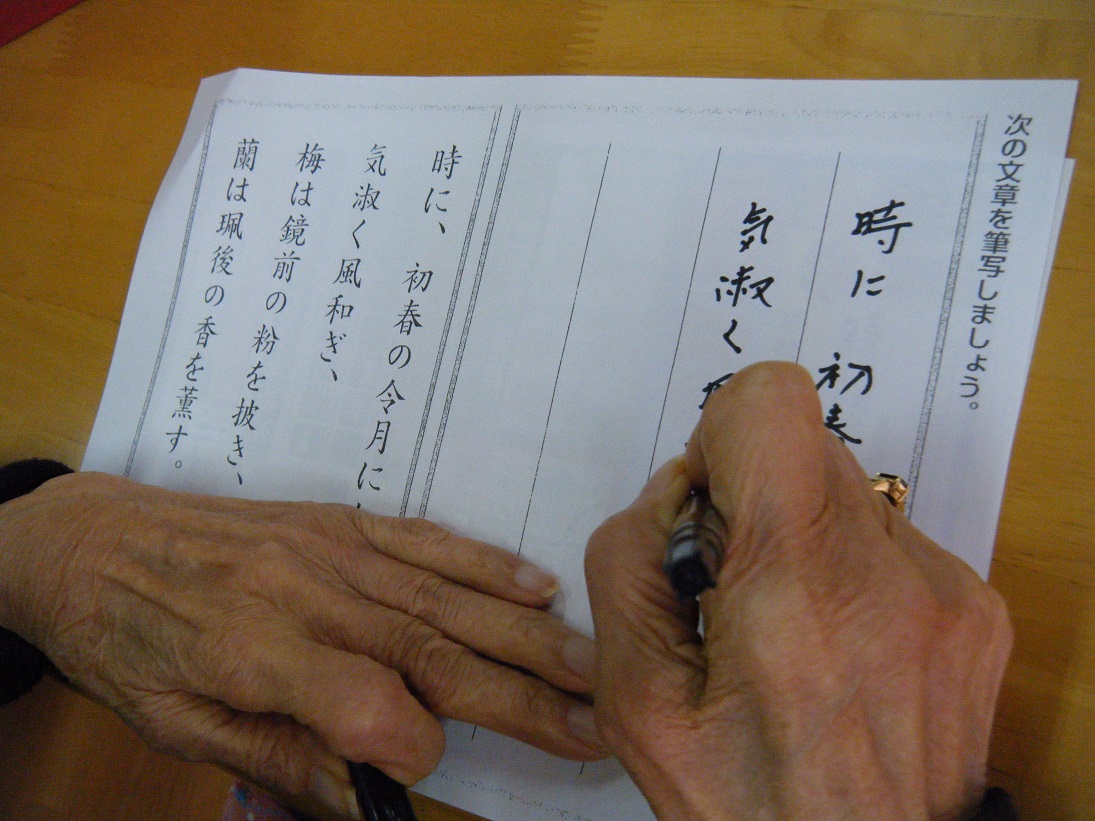 次の文章を筆写しましょう。
時に 初春
気淑く
時に、初春の令月に
気淑く風和ぎ、
梅は鏡前の粉を披き、
蘭は珮後の香を薫す。